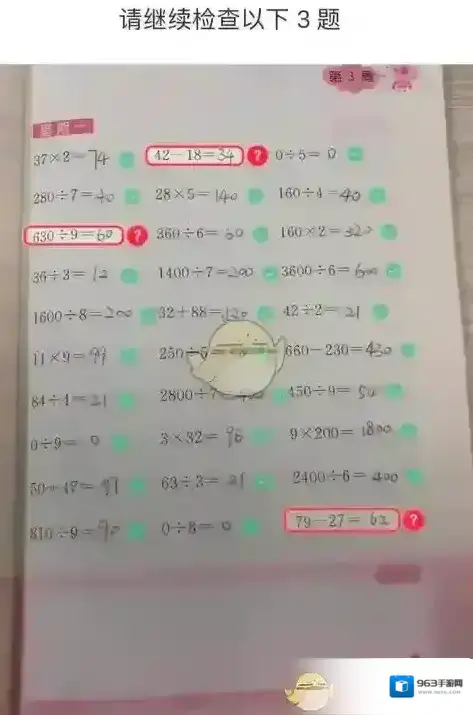 请继续检查以下 3 题
第 3 周
星期一
37×2=74 42-18=34 ? 0÷5=0
280÷7=40 28×5=140 160÷4=40
630÷9=60 ? 360÷6=60 160×2=320
36÷3=12 1400÷7=200 3600÷6=600
1600÷8=200 32+88=120 42÷2=21
11×9=99 250÷5= 660-230=430
84÷4=21 2800÷7= 450÷9=50
0÷9=0 3×32=96 9×200=1800
63÷3=21 2400÷6=400
810÷9=90 0÷8=0 79-27=62 ?
963手游网